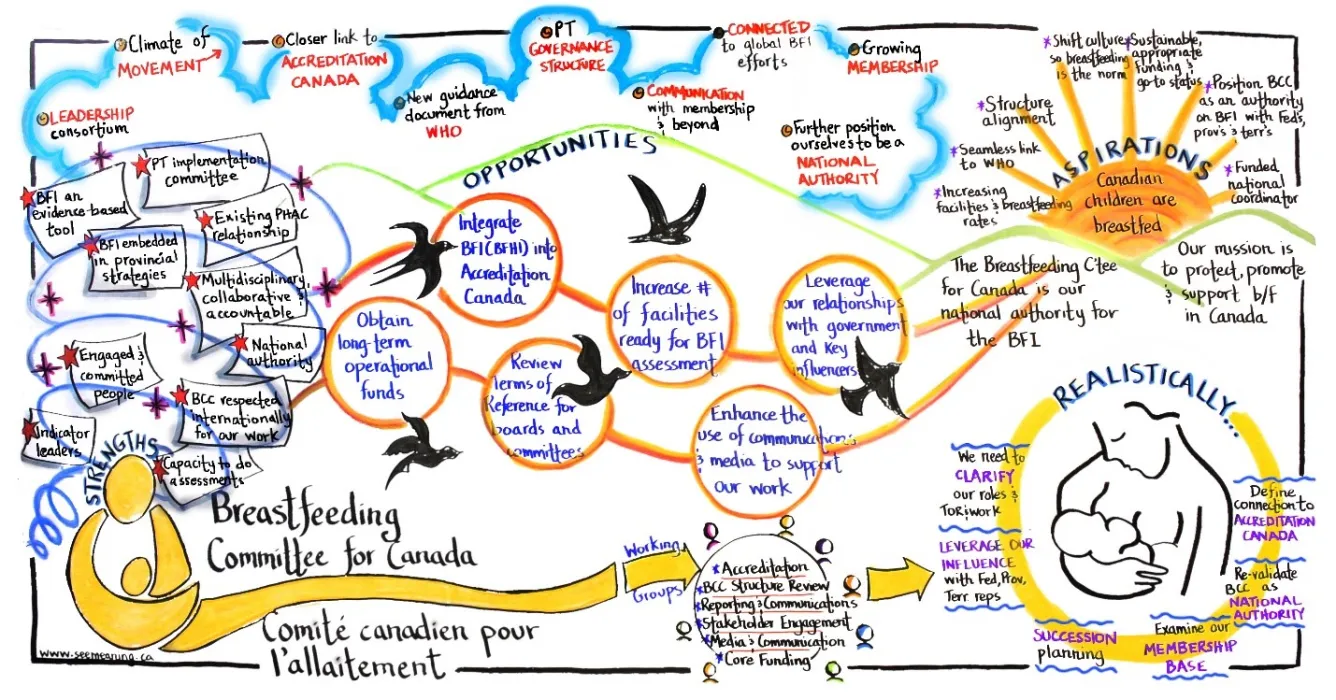 Climate of
MOVEMENT
Closer link to
ACCREDITATION
CANADA
PT
GOVERNANCE
STRUCTURE
CONNECTED
to global BFI
efforts
Growing
MEMBERSHIP
LEADERSHIP
consortium
New guidance
document from
WHO
COMMUNICATION
with membership
& beyond
Further position
ourselves to be a
NATIONAL
AUTHORITY
OPPORTUNITIES
*Shift culture
so breastfeeding
is the norm
*Sustainable,
appropriate
funding &
go-to status
*Structure
alignment
*Position BCC
as an authority
on BFI with Feds,
prov's & terr's
*Seamless link
to WHO
*Increasing
facilities & breastfeeding
rates
*Funded
national
coordinator
ASPIRATIONS
Canadian
children are
breastfed
PT implementation
committee
BFI an
evidence-based
tool
Existing PHAC
relationship
BFI embedded
in provincial
strategies
Multidisciplinary,
collaborative &
accountable
National
authority
Engaged &
committed
people
BCC respected
internationally
for our work
Indicator
leaders
Capacity to do
assessments
STRENGTHS
Integrate
BFI(BFHI) into
Accreditation
Canada
Obtain
long-term
operational
funds
Increase #
of facilities
ready for BFI
assessment
Review
Terms of
Reference for
boards and
committees
Leverage
our relationships
with government
and key
influencers
Enhance the
use of communications
& media to support
our work
The Breastfeeding C'tee
for Canada is our
national authority for
the BFI
Our mission is
to protect, promote
& support b/f
in Canada
Breastfeeding
Committee for Canada
Comité canadien pour
l'allaitement
www.seemeaning.ca
Working
Groups
*Accreditation
*BCC Structure Review
*Reporting & Communications
*Stakeholder Engagement
*Media & Communication
*Core Funding
REALISTICALLY...
We need to
CLARIFY
our roles &
ToR & work
LEVERAGE OUR
INFLUENCE
with Fed, Prov,
Terr reps
SUCCESSION
planning
Examine our
MEMBERSHIP
BASE
Define
connection to
ACCREDITATION
CANADA
Re-validate
BCC as
NATIONAL
AUTHORITY